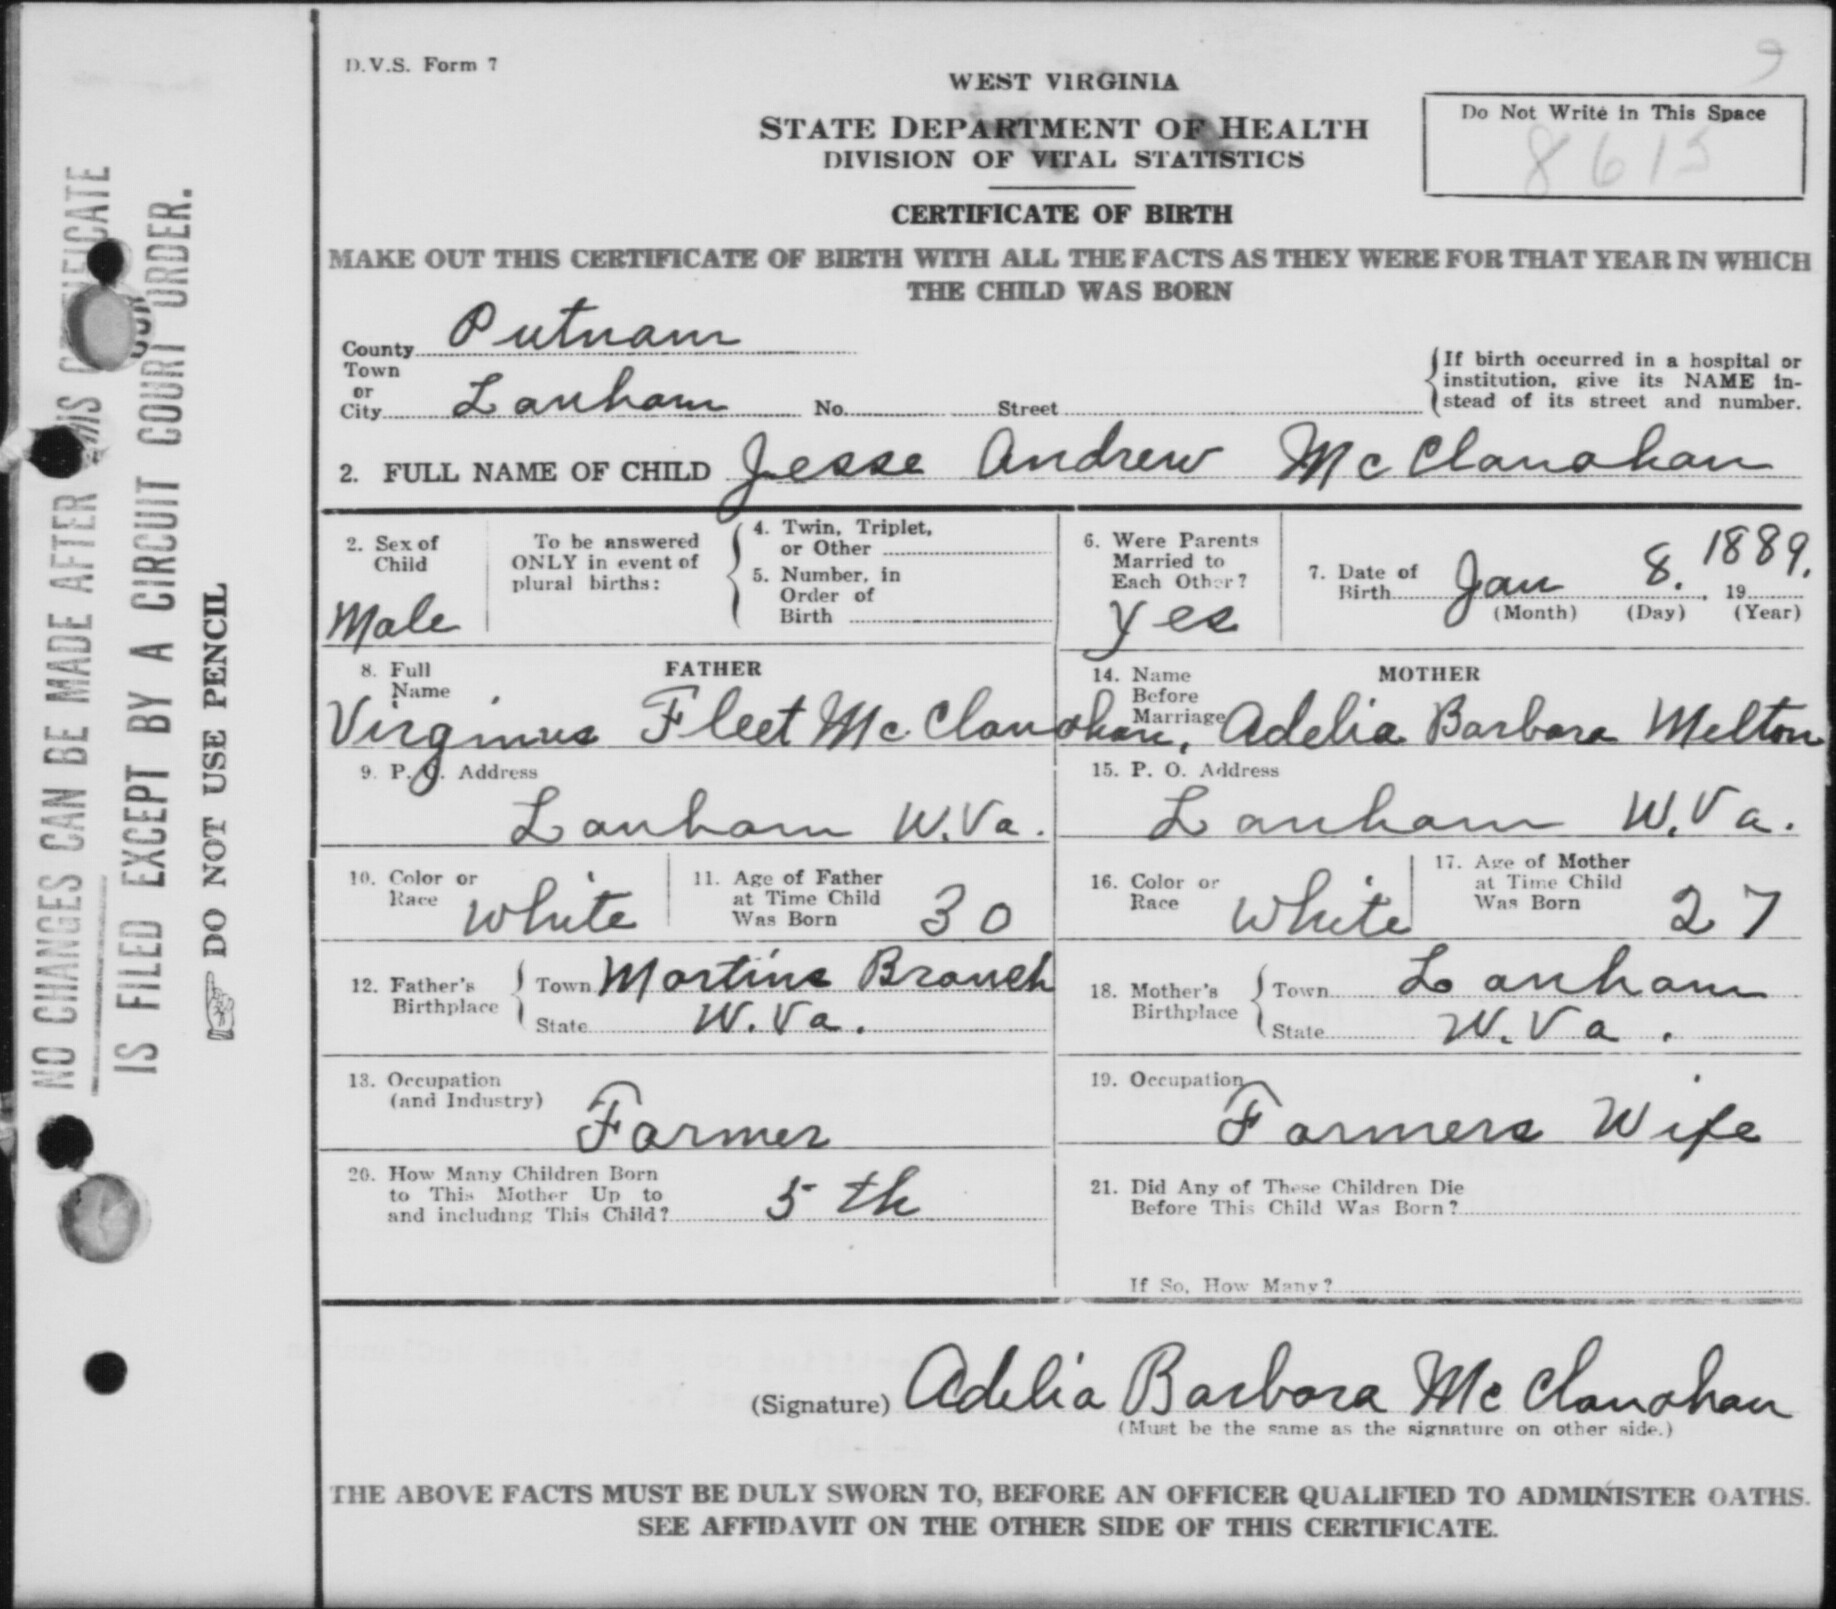 D.V.S. Form 7
9
WEST VIRGINIA
STATE DEPARTMENT OF HEALTH
DIVISION OF VITAL STATISTICS
Do Not Write in This Space
8615
CERTIFICATE OF BIRTH
MAKE OUT THIS CERTIFICATE OF BIRTH WITH ALL THE FACTS AS THEY WERE FOR THAT YEAR IN WHICH
THE CHILD WAS BORN
County Putnam
Town
or
City Lanham No. Street
If birth occurred in a hospital or
institution, give its NAME in-
stead of its street and number.
2. FULL NAME OF CHILD Jesse Andrew McClanahan
2. Sex of
Child
Male
To be answered
ONLY in event of
plural births:
4. Twin, Triplet,
or Other
5. Number, in
Order of
Birth
6. Were Parents
Married to
Each Other?
Yes
7. Date of
Birth Jan 8. 1889. , 19
(Month) (Day) (Year)
8. Full
Name
FATHER
Virginus Fleet McClanahan,
14. Name
Before
Marriage
MOTHER
Adelia Barbara Melton
9. P. O. Address
Lanham W.Va.
15. P. O. Address
Lanham W.Va.
10. Color or
Race White
11. Age of Father
at Time Child
Was Born 30
16. Color or
Race White
17. Age of Mother
at Time Child
Was Born 27
12. Father's
Birthplace
Town Martins Branch
State W.Va.
18. Mother's
Birthplace
Town Lanham
State W.Va.
13. Occupation
(and Industry) Farmer
19. Occupation
Farmers Wife
20. How Many Children Born
to This Mother Up to
and including This Child? 5th
21. Did Any of These Children Die
Before This Child Was Born?
If So, How Many?
(Signature) Adelia Barbara McClanahan
(Must be the same as the signature on other side.)
THE ABOVE FACTS MUST BE DULY SWORN TO, BEFORE AN OFFICER QUALIFIED TO ADMINISTER OATHS.
SEE AFFIDAVIT ON THE OTHER SIDE OF THIS CERTIFICATE.
NO CHANGES CAN BE MADE AFTER THIS CERTIFICATE
IS FILED EXCEPT BY A CIRCUIT COURT ORDER.
DO NOT USE PENCIL